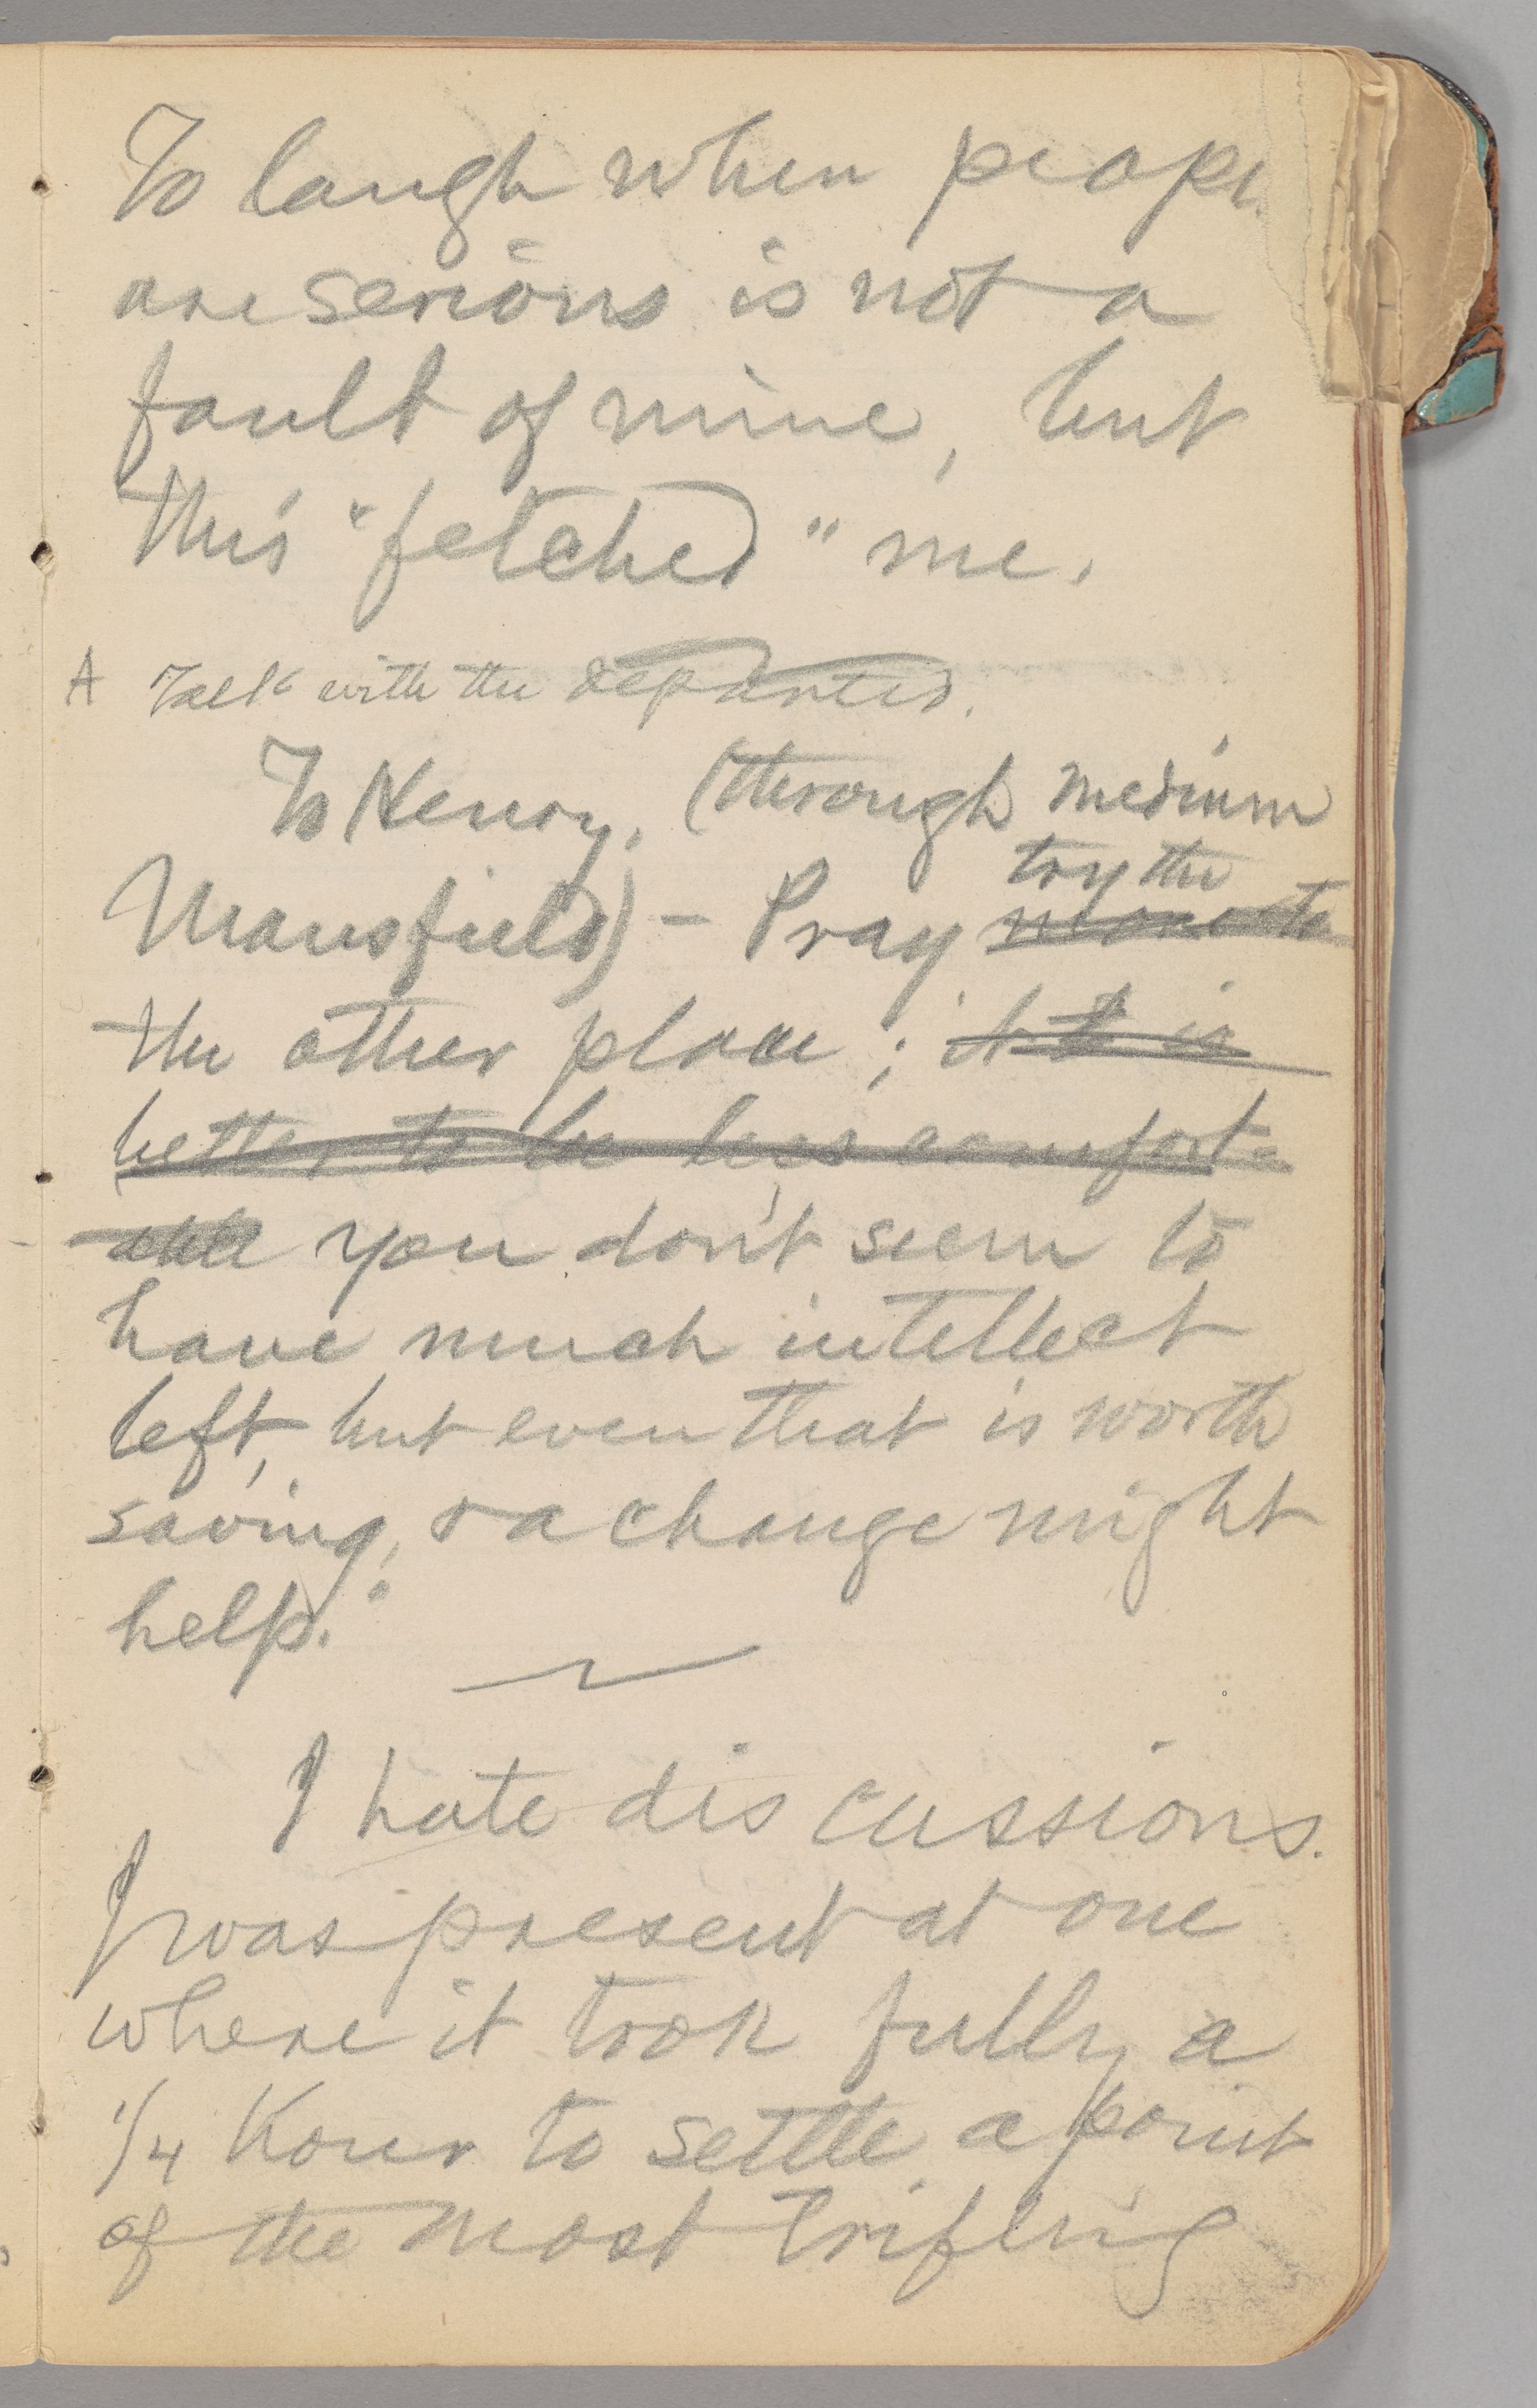 To laugh when peopl
are serious is not a
fault of mine, but
this "fetched" me.
A Talk with the departed.
To Henry, (through medium
try the
Mansfield) — Pray move to
the other place; it is
better to be less comfort-
able you don't seem to
have much intellect
left, but even that is worth
saving, & a change might
help."
I hate discussions.
I was present at one
where it took fully a
1/4 hour to settle a point
of the most trifling